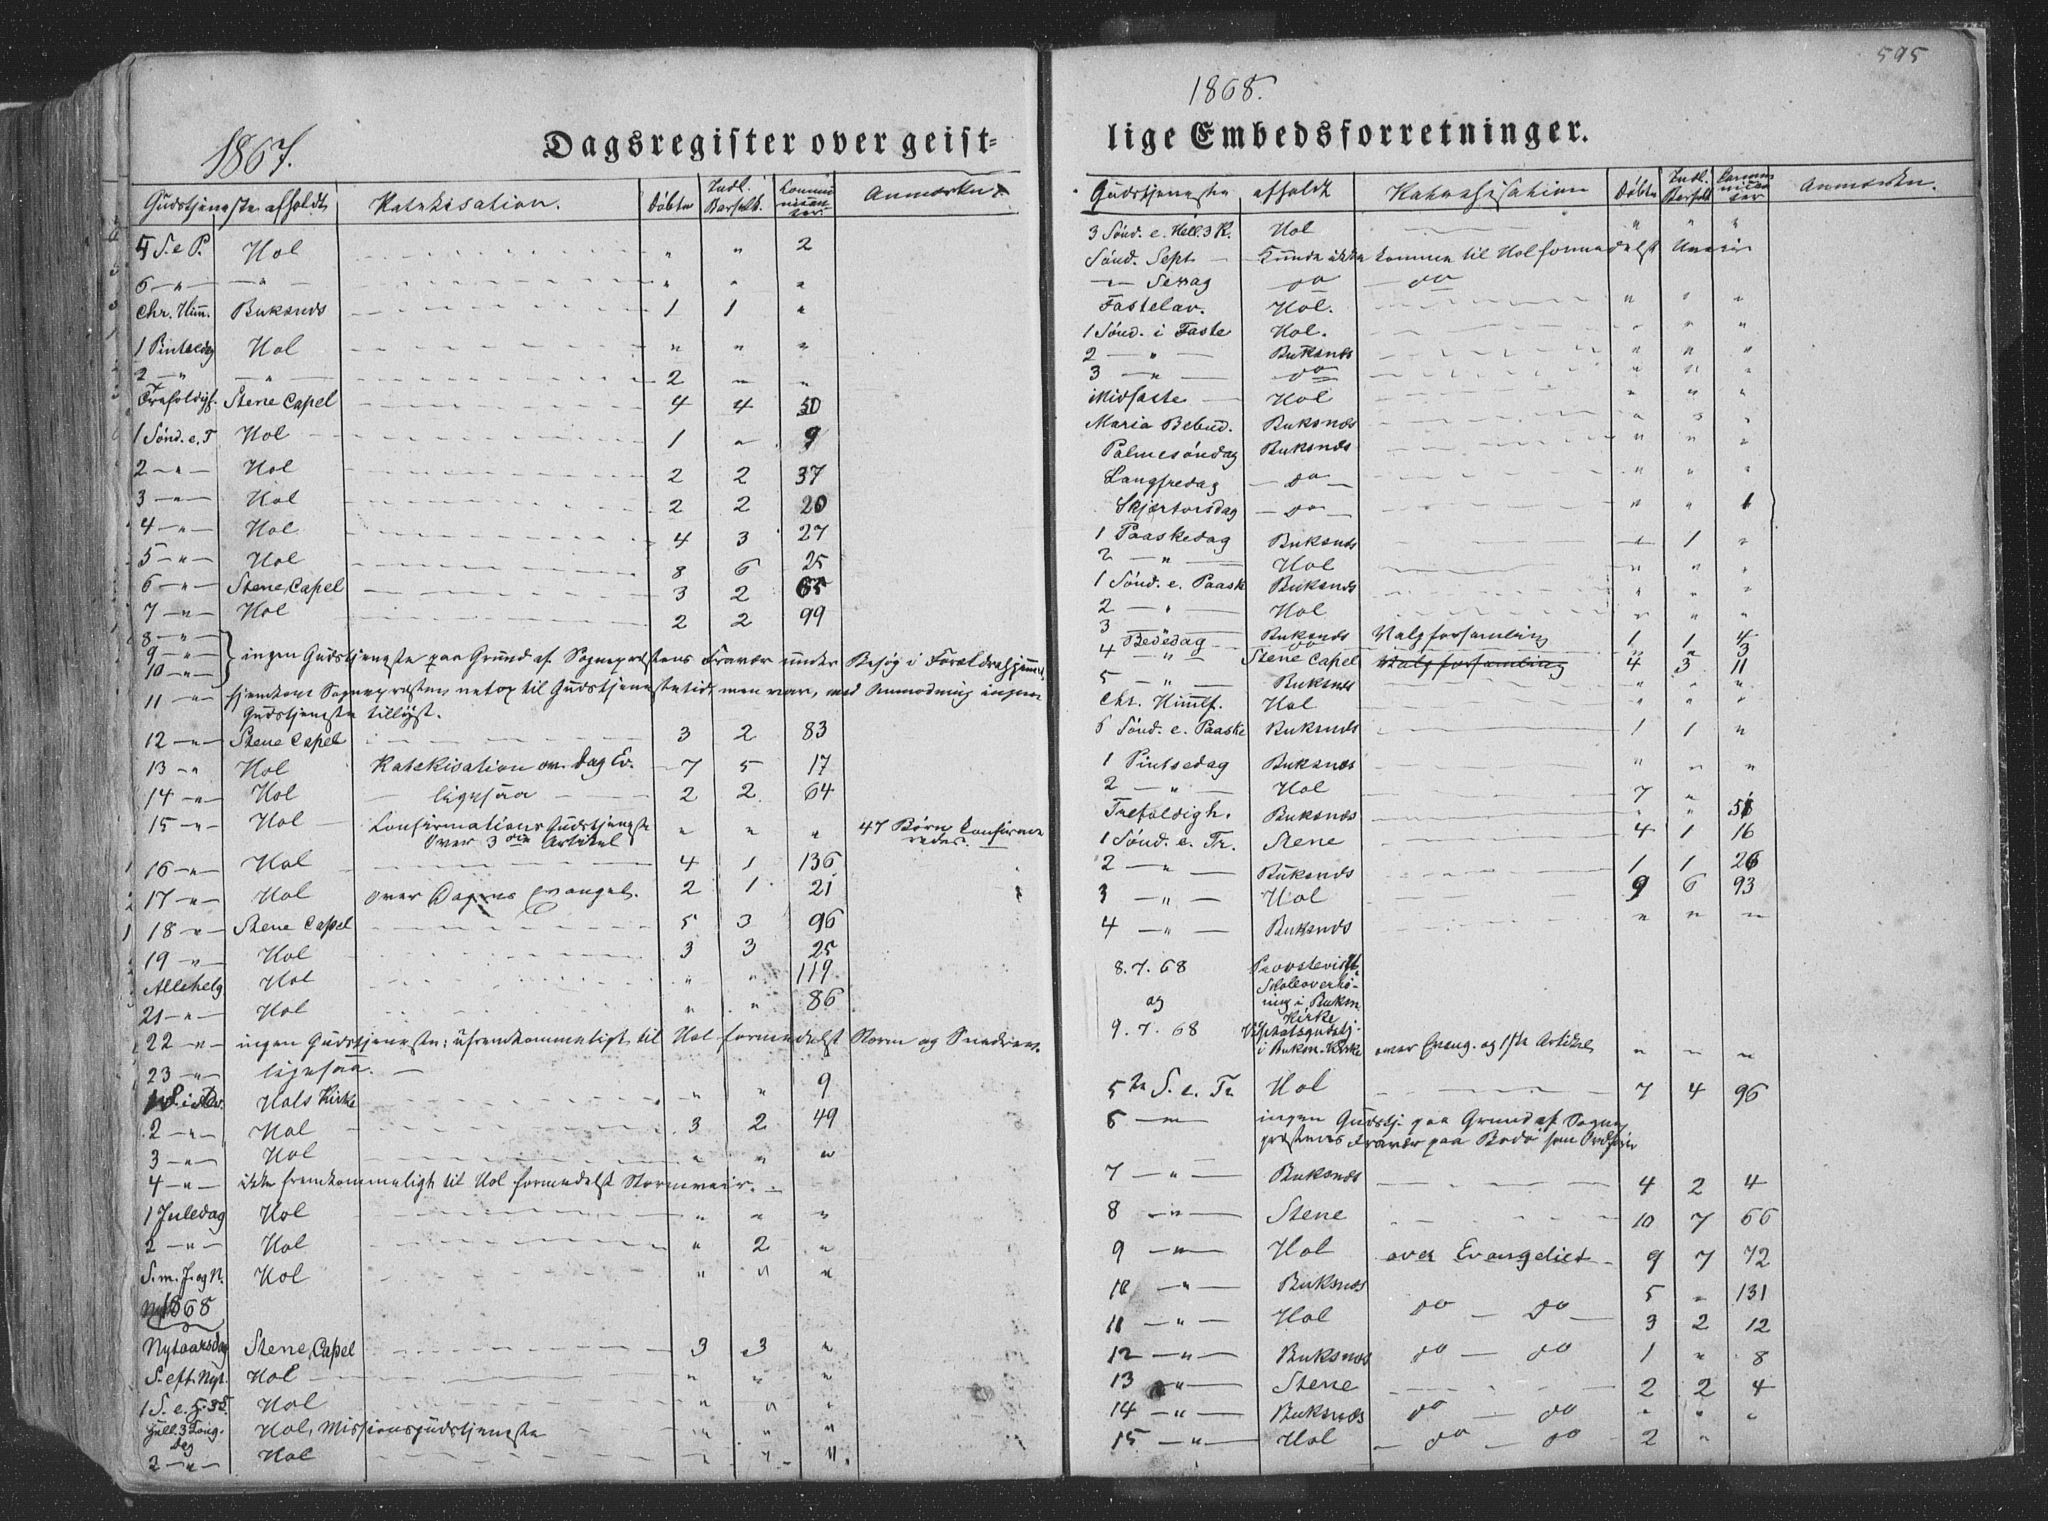 1867.
Dagsregister over geist=
Gudstjeneste afholdt Katekisation. Døbte Indl. Barselk. Communicanter. Anmærkn.
5 S. e P. Hol " " 2
6 — " — — " — " " "
Chr. Him. Buksnæs 1 1 "
1 Pintsedag Hol " " "
2 — " — " — 2 " "
Trefoldigh. Stene Capel 4 4 50
1 Sønd. e. T Hol 1 " 9
2 — " — Hol 2 2 37
3 — " — Hol 2 2 20
4 — " — Hol 4 3 27
5 — " — Hol 8 6 25
6 — " — Stene Capel 3 2 65
7 — " — Hol 2 2 99
8 — " —
9 — " — } ingen Gudstjeneste paa Grund af Sognepræstens Fravær under Besøg i Forældrehjemmet
10 — " —
11 — " — hjemkom Sognepræsten netop til Gudstjenestetid, men var, med Anmodning ingen
Gudstjeneste tillyst.
12 — " — Stene Capel 3 2 83
13 — " Hol Katekisation ov. Dag Ev. 7 5 17
14 — " — Hol — ligesaa — 2 2 64
15 — " — Hol Confirmations Gudstjeneste " " " 47 Børn Confirme-
over 3die Artikel redes.
16 — " — Hol 4 1 136
17 — " — Hol over Dagens Evangel. 2 1 21
18 — " — Stene Capel 5 3 96
19 — " Hol 3 3 25
Allehelg Hol " " 119
21 — " — Hol " " 86
22 — " — ingen Gudstjeneste; ufremkommeligt til Hol formedelst Storm og Snedrev.
23 — " — ligesaa. —
1 S. i Adv. Hols Kirke " " 9
2 — " — Hol 3 2 49
3 — " — Hol " " "
4 — " — ikke fremkommeligt til Hol formedelst Stormveir. —
1 Juledag Hol " " "
2 — " — Hol " 2 "
S. m. J. og N. Hol " " "
1868
Nytaarsdag Stene Capel 3 3 "
S. eft. Nyt. Hol " " "
1 S. e. H. 3 K. Hol " " "
Hell. 3 Kong.
dag Hol, Missionsgudstjeneste " " "
2 — " — Hol " " "
595
1868.
lige Embedsforretninger.
Gudstjeneste afholdt Katechisation Døbte Indl. Barselk Communicanter Anmærkn.
3 Sønd. e. Hell. 3 K. Hol " " "
Sønd. Sept — Kunde ikke komme til Hol formedelst Uveir
— " — Sexag — do — do —
Fastelav. Hol. " " "
1 Sønd. i Faste Hol. " " "
2 — " — Buksnæs " " "
3 — " — — do — " " "
Midfaste — Hol " " "
Maria Bebud. Buksnæs " " "
Palmesøndag Buksnæs " " "
Langfredag — do — " " "
Skjærtorsdag — do — " " 1
1 Paaskedag Buksnæs " 1 "
2 — " — Hol " " "
1 Sønd. e. Paaske Buksnæs " " "
2 — " — Hol " " "
3 — " —
Bededag Buksnæs Valgforsamling 1 1 4
4 — " — Stene Capel Valgforsamling 4 3 11
5 — " — Buksnæs " " "
Chr. Himlf. Hol " " "
6 Sønd. e. Paaske Buksnæs 1 1 "
1 Pintsedag Buksnæs " " "
2 — " — Hol 7 "
Trefoldigh. Buksnæs " " 51
1 Sønd. e. Tr. Stene 4 1 16
2 — " — Buksnæs 1 1 26
3 — " — Hol 9 6 93
4 — " — Buksnæs " " "
8. 7. 68 Provstevisit.
Skoleoverhø-
og ring i Buksn.
Kirke
9. 7. 68 Visitatsgudstj.
i Buksn. Kirke over Evang. og 1ste Artikel " " "
5te S. e. Tr. Hol 7 4 96
6 — " — ingen Gudstj. paa Grund af Sogne-
præstens Fravær paa Bodø som Ordfører
7 — " — Buksnæs 4 2 4
8 — " — Stene 10 7 66
9 — " — Hol over Evangeliet 9 7 72
10 — " — Buksnæs 5 " 131
11 — " — Hol do — do — 3 2 12
12 — " — Buksnæs do — do 1 " 8
13 — " — Stene 2 2 4
14 — " — Buksnæs do — do " " "
15 — " — Hol — do — do 2 "